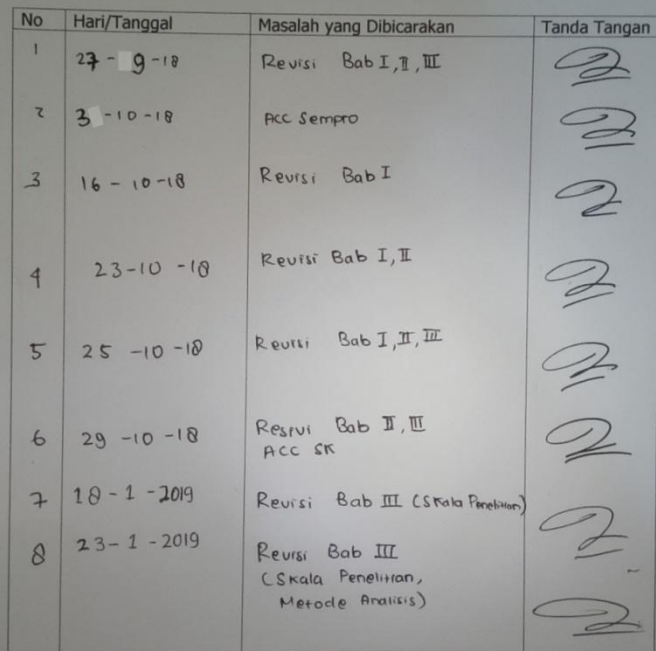 No Hari/Tanggal Masalah yang Dibicarakan Tanda Tangan
1 27 - 9 -18 Revisi Bab I, II, III
2 3 -10 -18 ACC Sempro
3 16 - 10 -18 Revisi Bab I
4 23-10 -18 Revisi Bab I, II
5 25 -10 -18 Revisi Bab I, II, III
6 29 -10 -18 Resrvi Bab II, III
ACC SK
7 18 - 1 - 2019 Revisi Bab III (Skala Penelitian)
8 23- 1 - 2019 Revisi Bab III
(Skala Penelitian,
Metode Analisis)